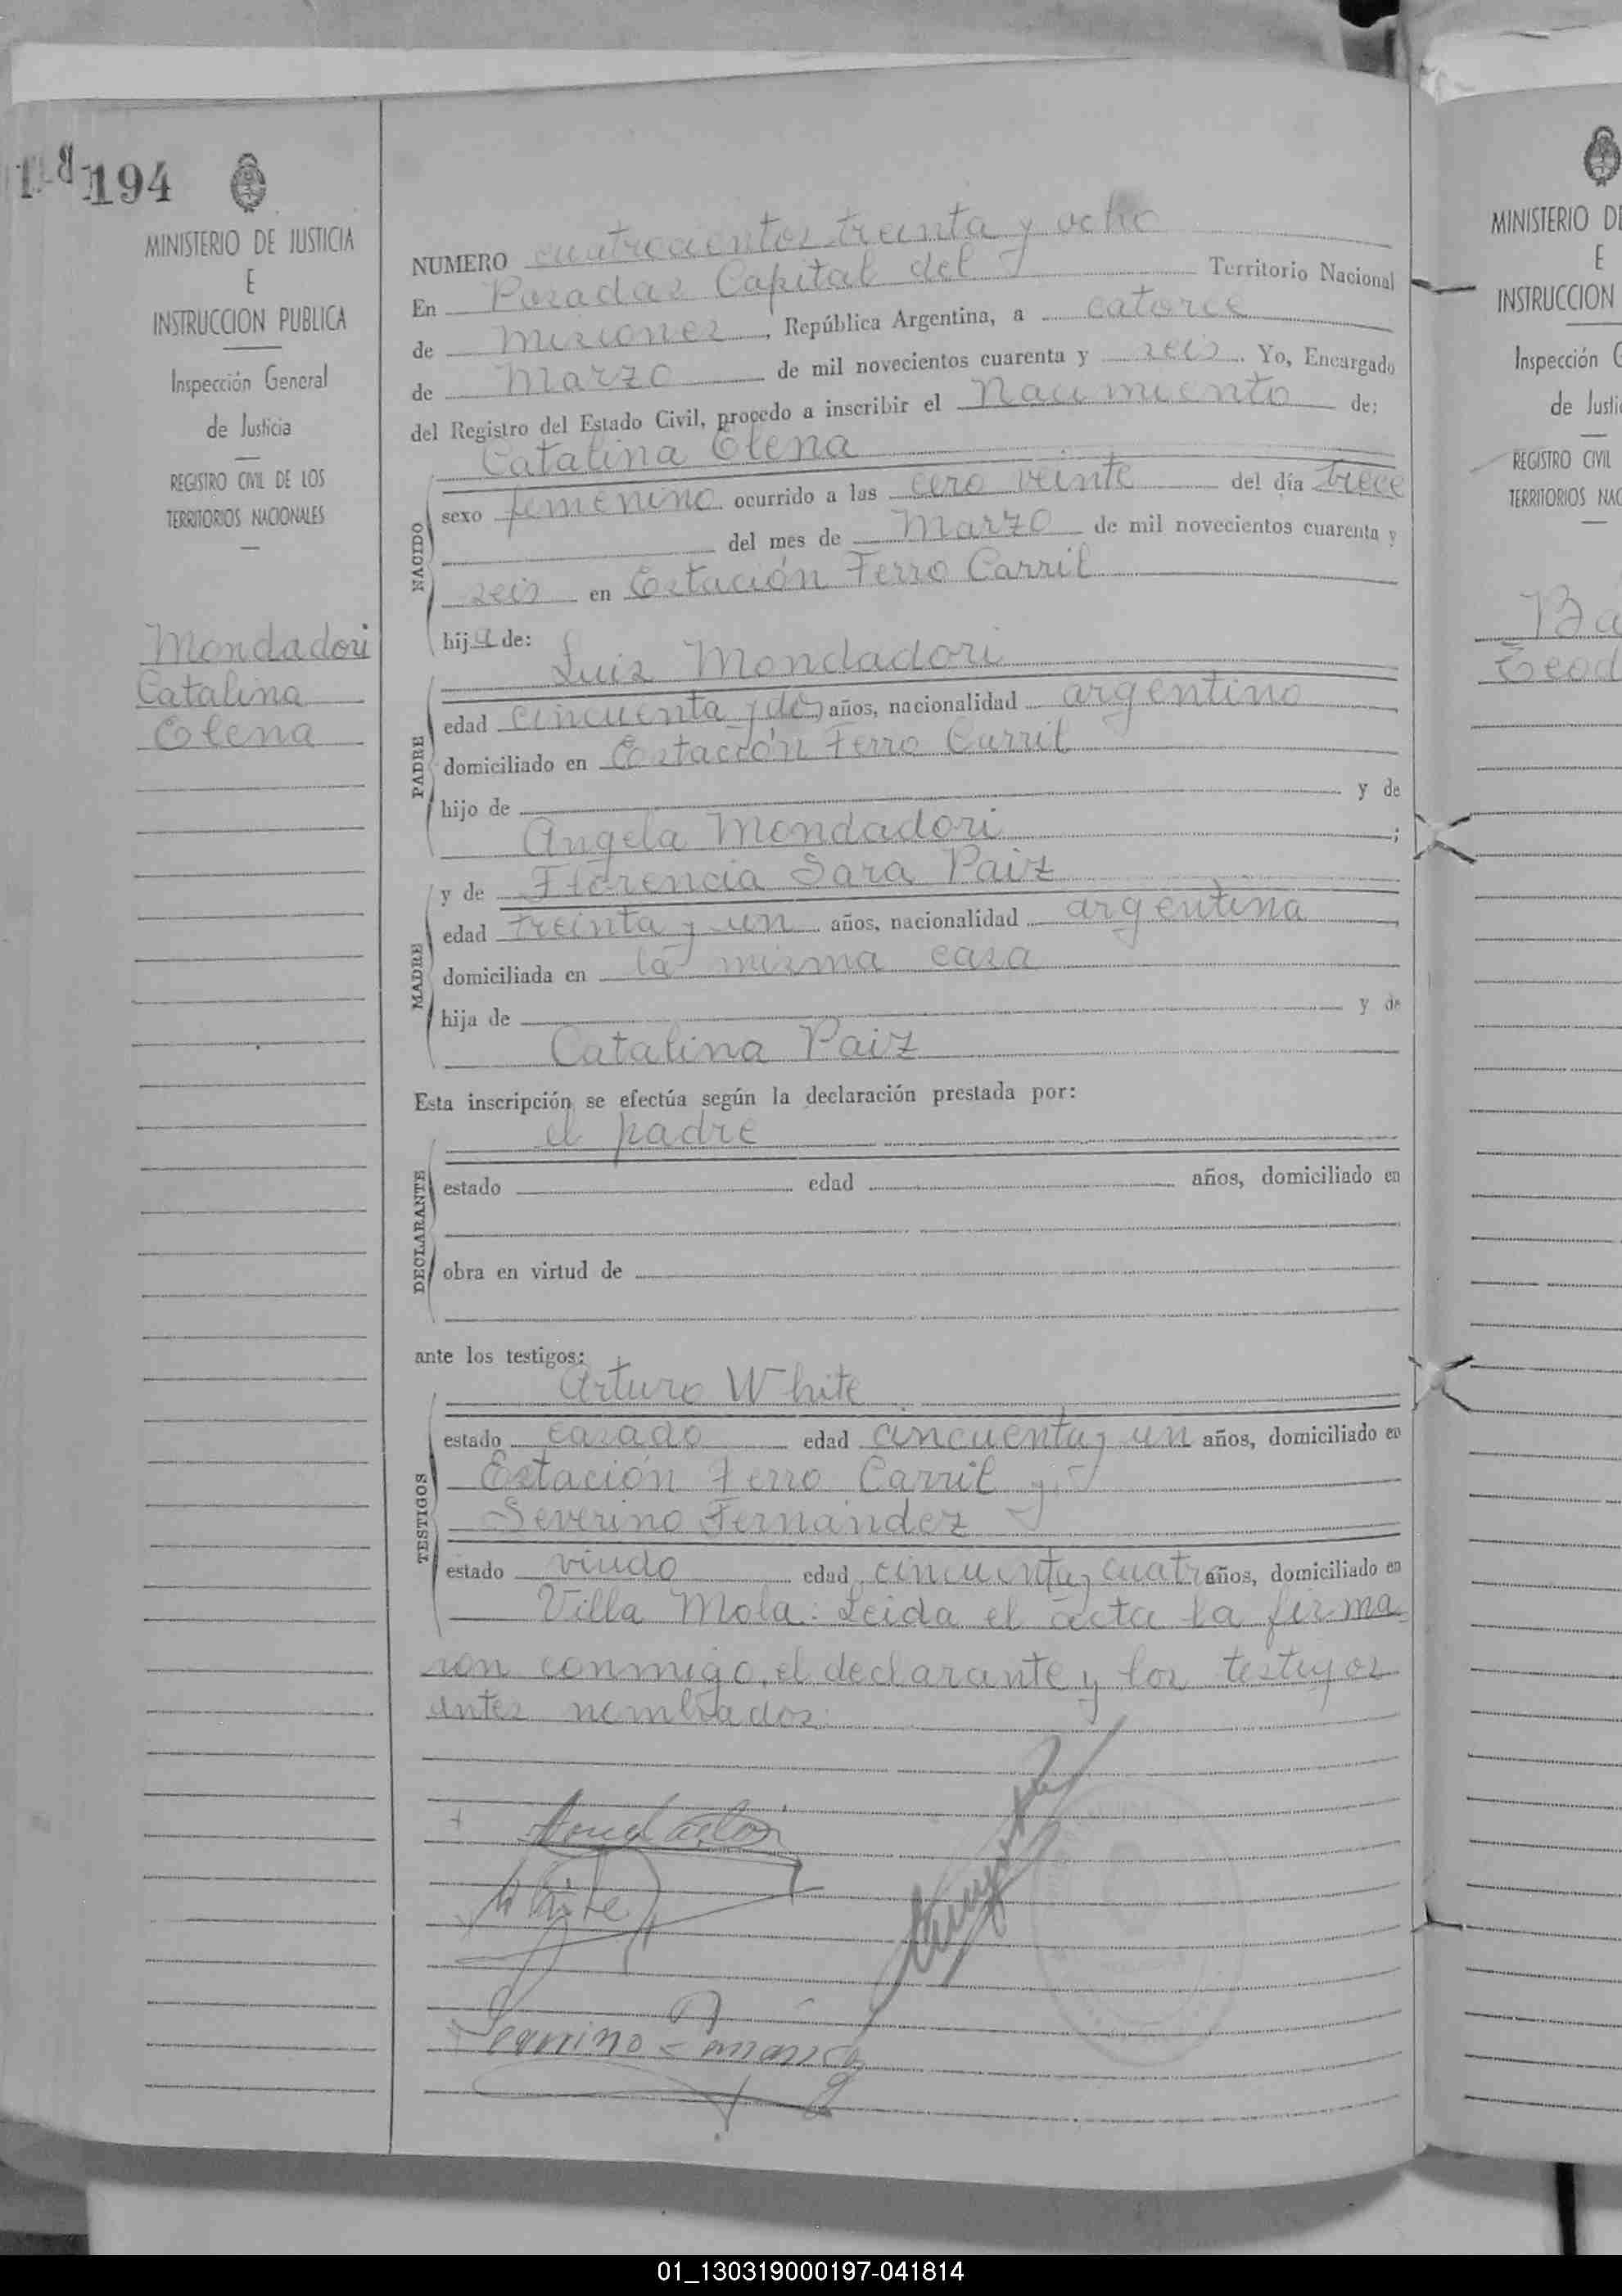 194
MINISTERIO DE JUSTICIA
E
INSTRUCCION PUBLICA
Inspección General
de Justicia
REGISTRO CIVIL DE LOS
TERRITORIOS NACIONALES
Mondadori
Catalina
Elena
NUMERO cuatrocientos treinta y ocho
En Posadas Capital del Territorio Nacional
de Misiones, República Argentina, a catorce
de Marzo de mil novecientos cuarenta y seis. Yo, Encargado
del Registro del Estado Civil, procedo a inscribir el Nacimiento de:
Catalina Elena
NACIDO
sexo femenino ocurrido a las cero veinte del día trece
del mes de Marzo de mil novecientos cuarenta y
seis en Estación Ferro Carril
hija de:
Luis Mondadori
PADRE
edad cincuenta y dos años, nacionalidad argentino
domiciliado en Estación Ferro Carril
hijo de y de
Angela Mondadori ;
y de Florencia Sara Paiz
MADRE
edad treinta y un años, nacionalidad argentina
domiciliada en la misma casa
hija de y de
Catalina Paiz
Esta inscripción se efectúa según la declaración prestada por:
el padre
DECLARANTE
estado edad años, domiciliado en
obra en virtud de
ante los testigos:
Arturo White
TESTIGOS
estado casado edad cincuenta y un años, domiciliado en
Estación Ferro Carril y
Severino Fernández
estado viudo edad cincuenta y cuatro años, domiciliado en
Villa Mola: Leida el acta la firma
ron conmigo, el declarante y los testigos
antes nombrados.
Mondadori
White
MINISTERIO DE
E
INSTRUCCION
Inspección G
de Justic
REGISTRO CIVIL
TERRITORIOS NAC
Ba
Teod
01_130319000197-041814